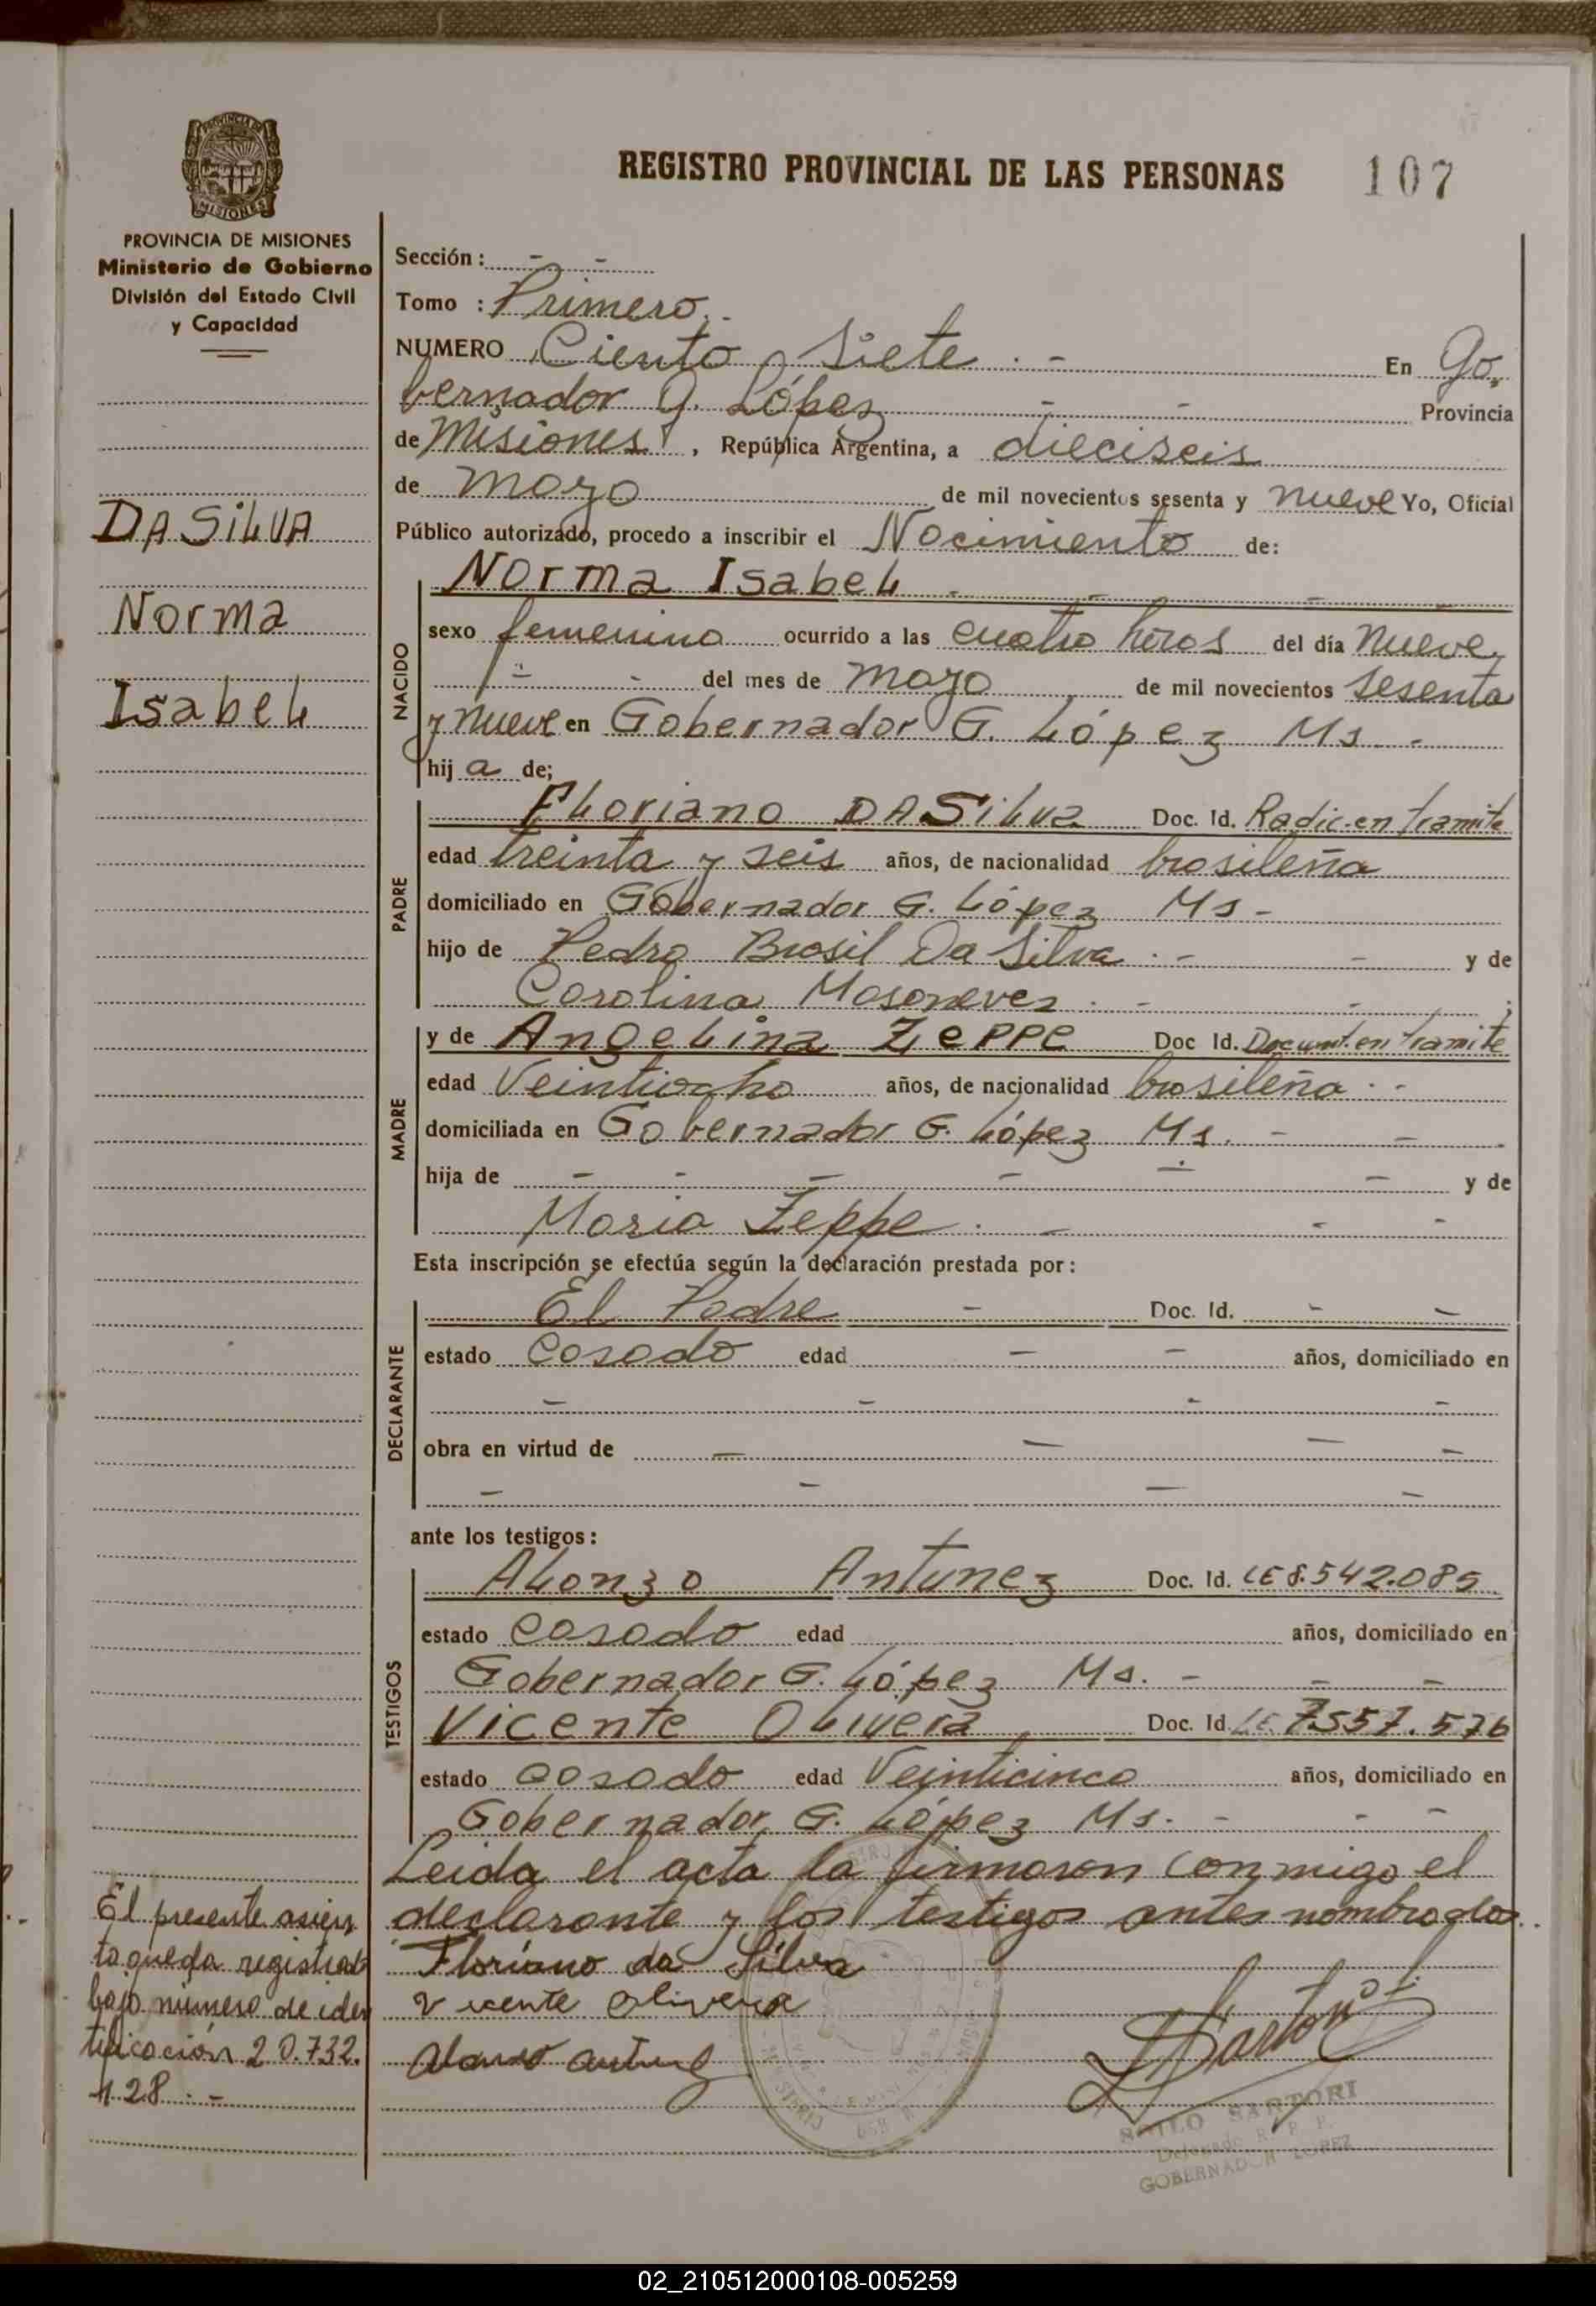 REGISTRO PROVINCIAL DE LAS PERSONAS 107
PROVINCIA DE MISIONES
Ministerio de Gobierno
División del Estado Civil
y Capacidad
DA SILVA
Norma
Isabel
Sección: - -
Tomo : Primero.-
NUMERO Ciento Siete . - En Go,
bernador G. López - - Provincia
de Misiones, República Argentina, a dieciseis
de mayo de mil novecientos sesenta y nueve Yo, Oficial
Público autorizado, procedo a inscribir el Nacimiento de:
NACIDO
Norma Isabel - - - -
sexo femenino ocurrido a las cuatro horas del día nueve
- - del mes de mayo de mil novecientos sesenta
y nueve en Gobernador G. López Ms -
hij a de;
PADRE
Floriano DA SilVa Doc. Id. Radic. en tramite
edad treinta y seis años, de nacionalidad brasileña
domiciliado en Gobernador G. López Ms -
hijo de Pedro Brasil Da Silva . - - y de
Carolina . - - ;
MADRE
y de Angelina Zeppe Doc Id. Document. en tramite
edad Veintiocho años, de nacionalidad brasileña . -
domiciliada en Gobernador G. López Ms. - -
hija de - - - - - - y de
Maria Zeppe . - - -
Esta inscripción se efectúa según la declaración prestada por:
DECLARANTE
El Padre - Doc. Id. - -
estado Casado edad - - años, domiciliado en
- - - -
obra en virtud de - - - -
- - - -
ante los testigos:
TESTIGOS
Alonzo Antunez Doc. Id. LE 8.542.085
estado casado edad años, domiciliado en
Gobernador G. López Ms. - - -
Vicente Olivera Doc. Id. LE. 7557.576
estado casado edad Veinticinco años, domiciliado en
Gobernador G. López Ms. - - -
Leida el acta la firmaron conmigo el
declarante y los testigos antes nombrados.
Floriano da Silva
Vicente Olivera
Alonso Antunez
El presente asien
to queda registrado
bajo número de iden
tificación 20.732.
128 . -
SARTORI
Delegado R. P. P.
GOBERNADOR LOPEZ
02_210512000108-005259